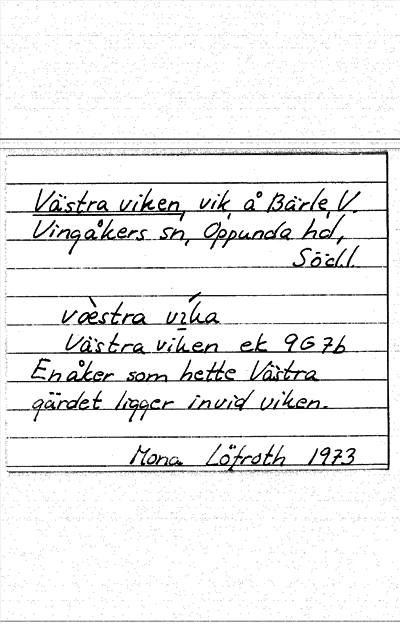 Västra viken, vik, å Bärle, V.
Vingåkers sn, Oppunda hd,
Södl.
væ̀stra vı̄́ka
Västra viken ek 9G7b
En åker som hette Västra
gärdet ligger invid viken.
Mona Löfroth 1973